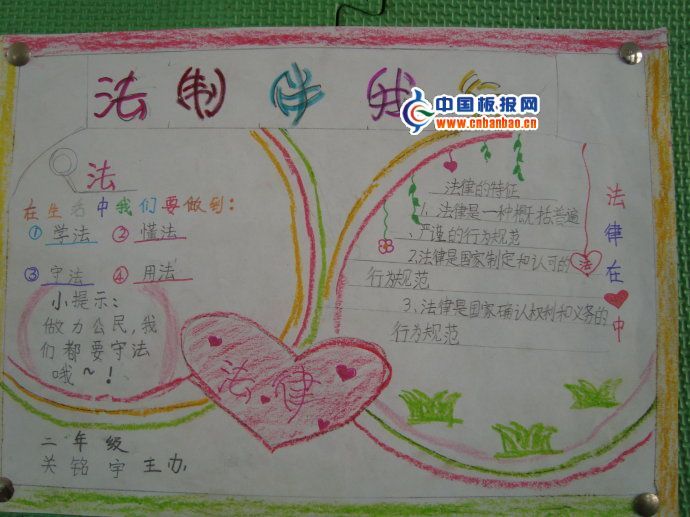 法制伴我
中国板报网
www.cnbanbao.cn
法
在生活中我们要做到:
①学法 ②懂法
③守法 ④用法
小提示:
做力公民,我
们都要守法
哦~!
法律
二年级
关铭宇主办
法律的特征
1、法律是一种概括普遍
、严谨的行为规范
2、法律是国家制定和认可的
行为规范
3、法律是国家确认权利和义务的
行为规范
法
法律在中